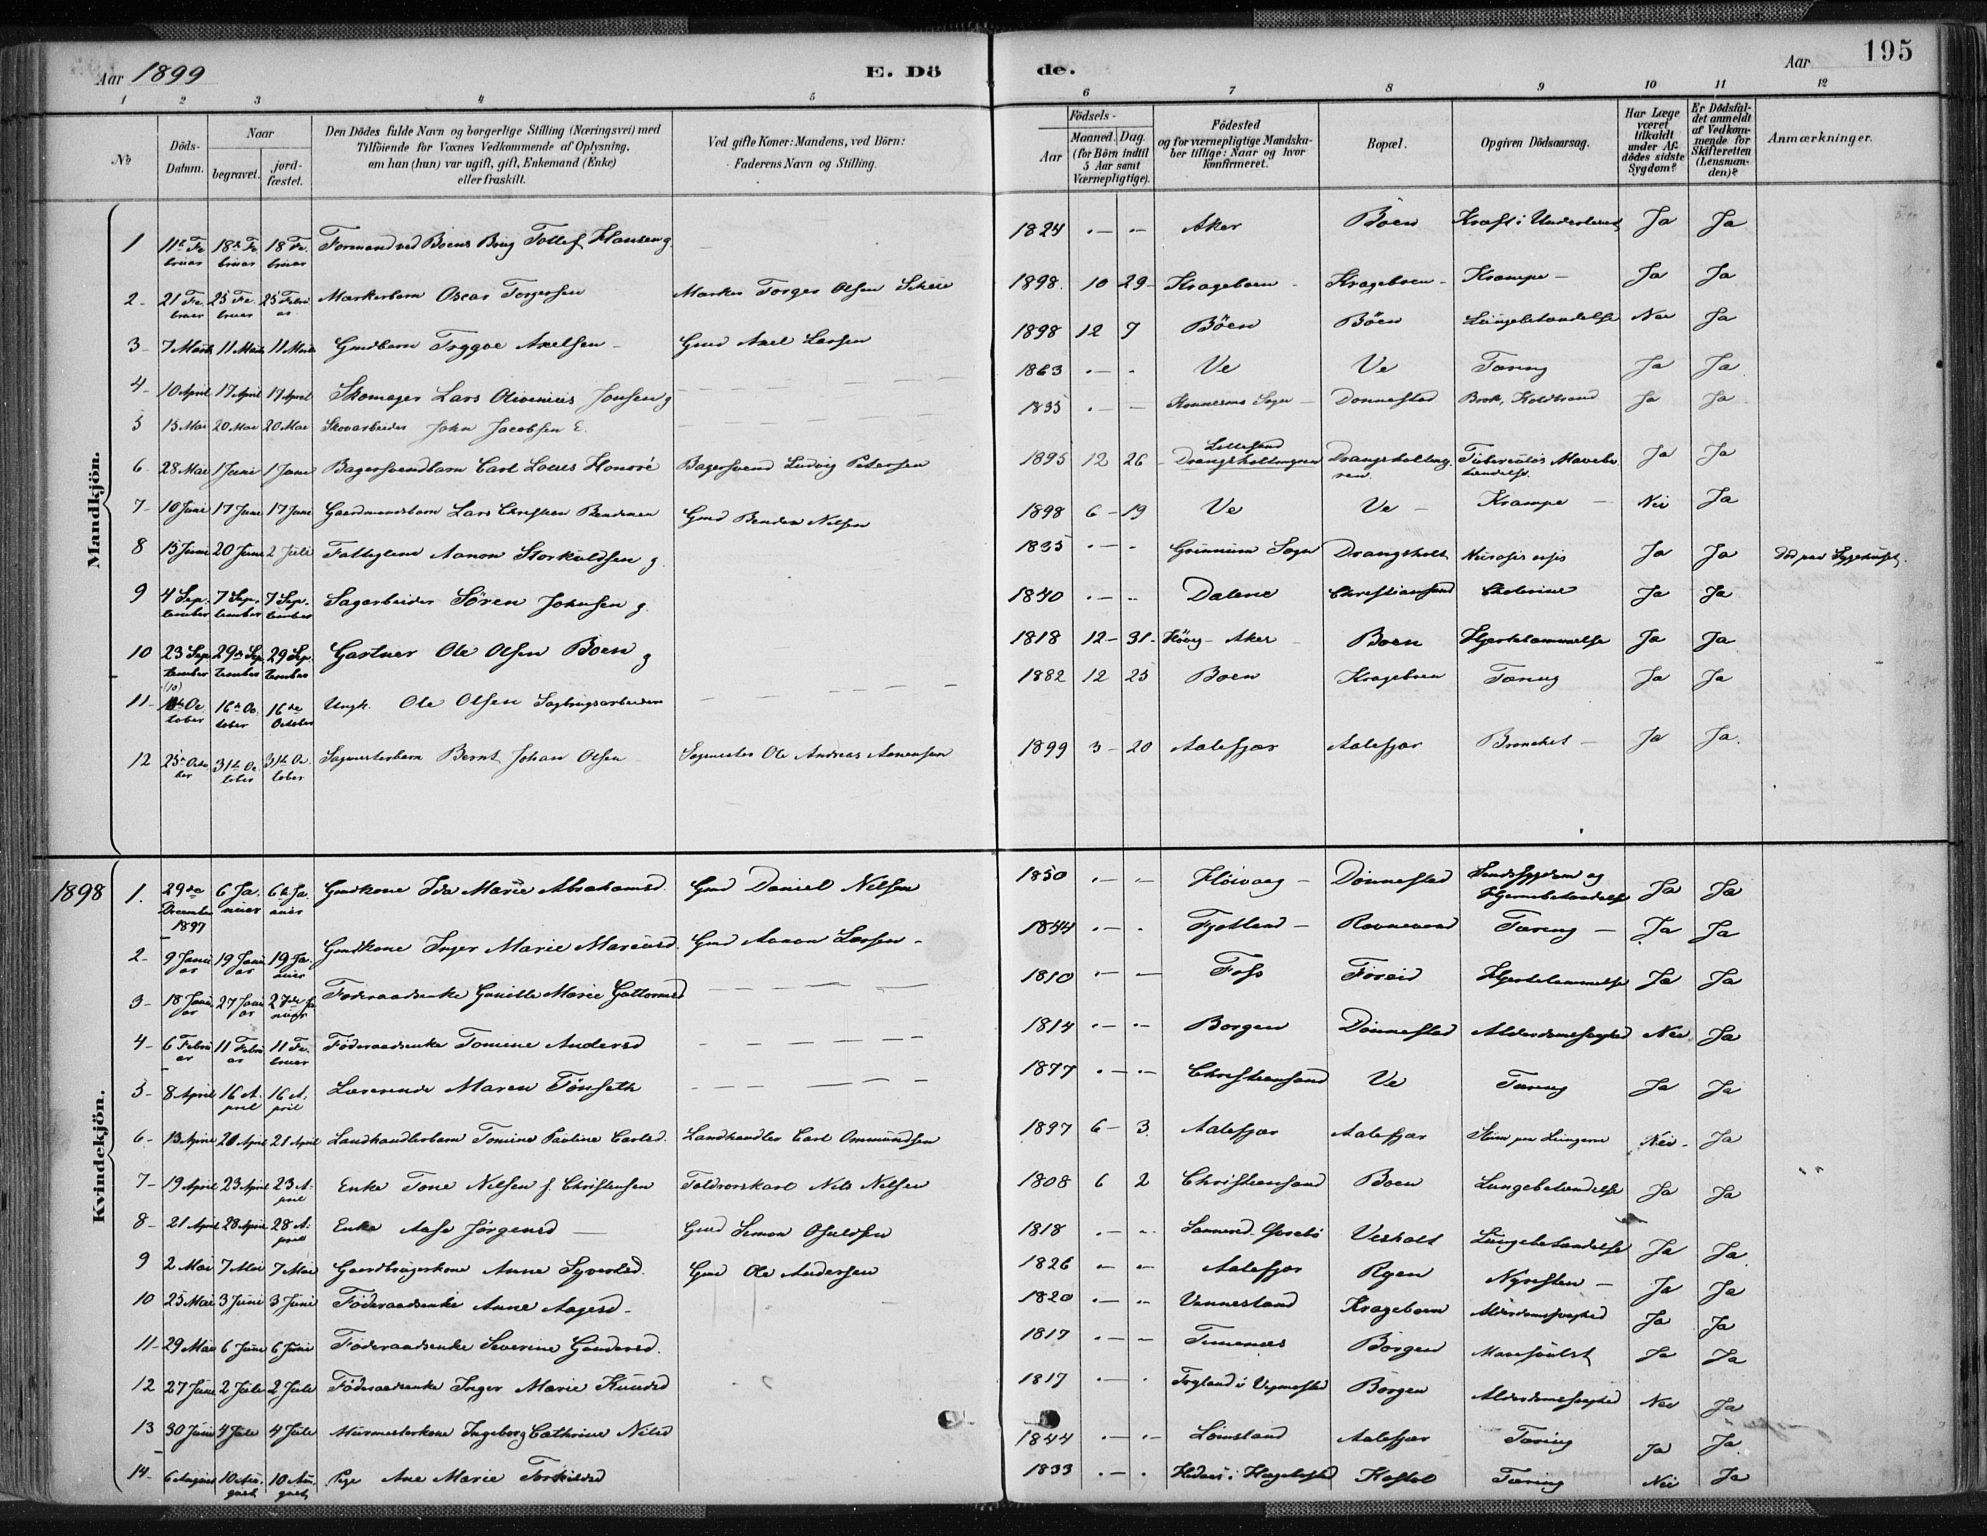 Aar 1899 E. Dö de. Aar 195
1 2 3 4 5 6 7 8 9 10 11 12
No
Döds-Datum.
Naar begravet. jordfæstet.
Den Dödes fulde Navn og borgerlige Stilling (Næringsvei) med Tilföiende for Voxnes Vedkommende af Oplysning, om han (hun) var ugift, gift, Enkemand (Enke) eller fraskilt.
Ved gifte Koner: Mandens, ved Börn: Faderens Navn og Stilling.
Födsels-
Aar Maaned. Dag. (for Börn indtil 5 Aar samt Værnepligtige).
Födested og for værnepligtige Mandskaber tillige: Naar og hvor konfirmeret.
Bopæl.
Opgiven Dödsaarsag.
Har Læge været tilkaldt under Afdödes sidste Sygdom?
Er Dödsfaldet anmeldt af Vedkommende for Skifteretten (Lensmanden)?
Anmærkninger.
Mandkjön.
1 11te Februar 18de Februar 18 Februar Formand ved Boens Brug Tollef Hansen g. 1824 Aker Boen Kræft i Underlivet Ja Ja
2 21 Februar 25 Februar 25 Februar Markerbarn Oscar Torgersen Marker Torger Olsen 1898 10 29 Krageboen Krageboen Krampe Ja Ja
3 7 Marts 11 Marts 11 Marts Gmdbarn Tryggve Axelsen Gmd Axel Larsen 1898 12 7 Böen Böen Lungebetændelse Nei Ja
4 10 April 17 April 17 April Skomager Lars Olivenius Jonsen g 1863 Ve Ve Tæring Ja Ja
5 15 Mai 20 Mai 20 Mai Skovarbeider John Jacobsen E. 1835 Sogn Donnestad Brok, Koldbrand Ja Ja
6 28 Mai 1 Juni 1 Juni Bagersvendbarn Carl Louis Honoré Bagersvend Ludvig Petersen 1895 12 26 Lillesand Tuberculös Mavebetændelse Ja Ja
7 10 Juni 17 Juni 17 Juni Gaardmandsbarn Lars Christian Bendixen Gmd Bendix Nilsen 1898 6 19 Ve Ve Krampe Nei Ja
8 15 Juni 20 Juni 2 Juli Fattiglem Aanon Storkuldsen g. 1835 Sogn Drangsholt Ja Ja Död paa Sygehuset.
9 4 September 7 September 7 September Sagarbeider Sören Johnsen g. 1840 Dalene Christiansand Cholerine Ja Ja
10 23 September 29de September 29 September Gartner Ole Olsen Boen g 1818 12 31 Aker Boen Hjertelammelse Ja Ja
11 (10) October 16de October 16de October Ungk. Ole Olsen Sagbrugsarbeider 1882 12 25 Boen Krageboen Tæring Ja Ja
12 25de October 31te October 31te October Sagmesterbarn Bernt Johan Olsen Sagmester Ole Andreas Aanensen 1899 3 20 Aalefjær Aalefjær Bronchit Ja Ja
Kvindekjön.
1898
1. 29de December 1897 6 Januar 6te Januar Gmdkone Ida Marie Abrahamsd. Gmd Daniel Nilsen 1850 Höivaag Dönnestad Sindssygdom og Hjernebetændelse Ja Ja
2 9 Januar 19 Januar 19 Januar Gmdkone Inger Marie Mariusd. Gmd Aanon Larsen 1844 Fjotland Tæring Ja Ja
3 18 Januar 27 Januar 27de Januar Föderaadsenke Gunille Marie Guttormsd 1810 Foss Foreid Hjertelammelse Ja Ja
4 6 Februar 11 Februar 11 Februar Föderaadsenke Tomine Andersd 1814 Borgen Donnestad Alderdomssvaghed Nei Ja
5 8 April 16 April 16 April Lærerinde Maren Tönseth 1877 Christiansand Ve Tæring Ja Ja
6 13 April 21 April 21 April Landhandlerbarn Tomine Pauline Carlsd. Landhandler Carl Ommundsen 1897 6 3 Aalefjær Aalefjær Sliim paa Lungerne Nei Ja
7 19 April 23 April 23 April Enke Tone Nilsen f. Christensen Toldrorskarl Nils Nilsen 1808 6 2 Christiansand Boen Lungebetændelse Ja Ja
8 21 April 28 April 28 April Enke Aase Jörgensd Gmd Simon Osuldsen 1818 Vesholt Lungebetændelse Ja Ja
9 2 Mai 7 Mai 7 Mai Gaardbrugerkone Anne Syvertsd. Gmd Ole Andersen 1826 Aalefjær Ryen Nyresten Ja Ja
10 25 Mai 3 Juni 3 Juni Föderaadsenke Anne Aagesd 1820 Vennesland Krageboen Alderdomssvaghed Ja Ja
11 29 Mai 6 Juni 6 Juni Föderaadsenke Severine Gundersd. 1817 Timenes Borgen Mavesvulst Ja Ja
12 27 Juni 2 Juli 2 Juli Föderaadsenke Inger Marie Knudsd 1817 Borgen Alderdomssvaghed Nei Ja
13 30 Juni 4 Juli 4 Juli Murmesterkone Ingeborg Cathrine Nilsd 1844 Lömsland Aalefjær Tæring Ja Ja
14 6 August 10 August 10 August Pige Ane Marie Torkildsd 1833 Kostöl Tæring Nei Ja